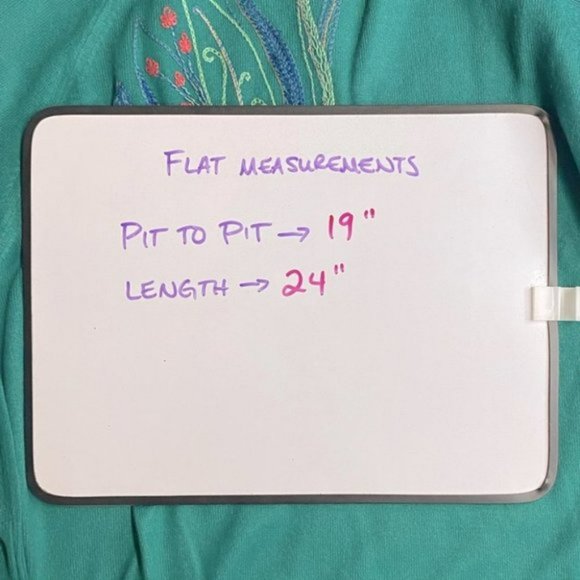 FLAT MEASUREMENTS
PIT TO PIT → 19"
LENGTH → 24"